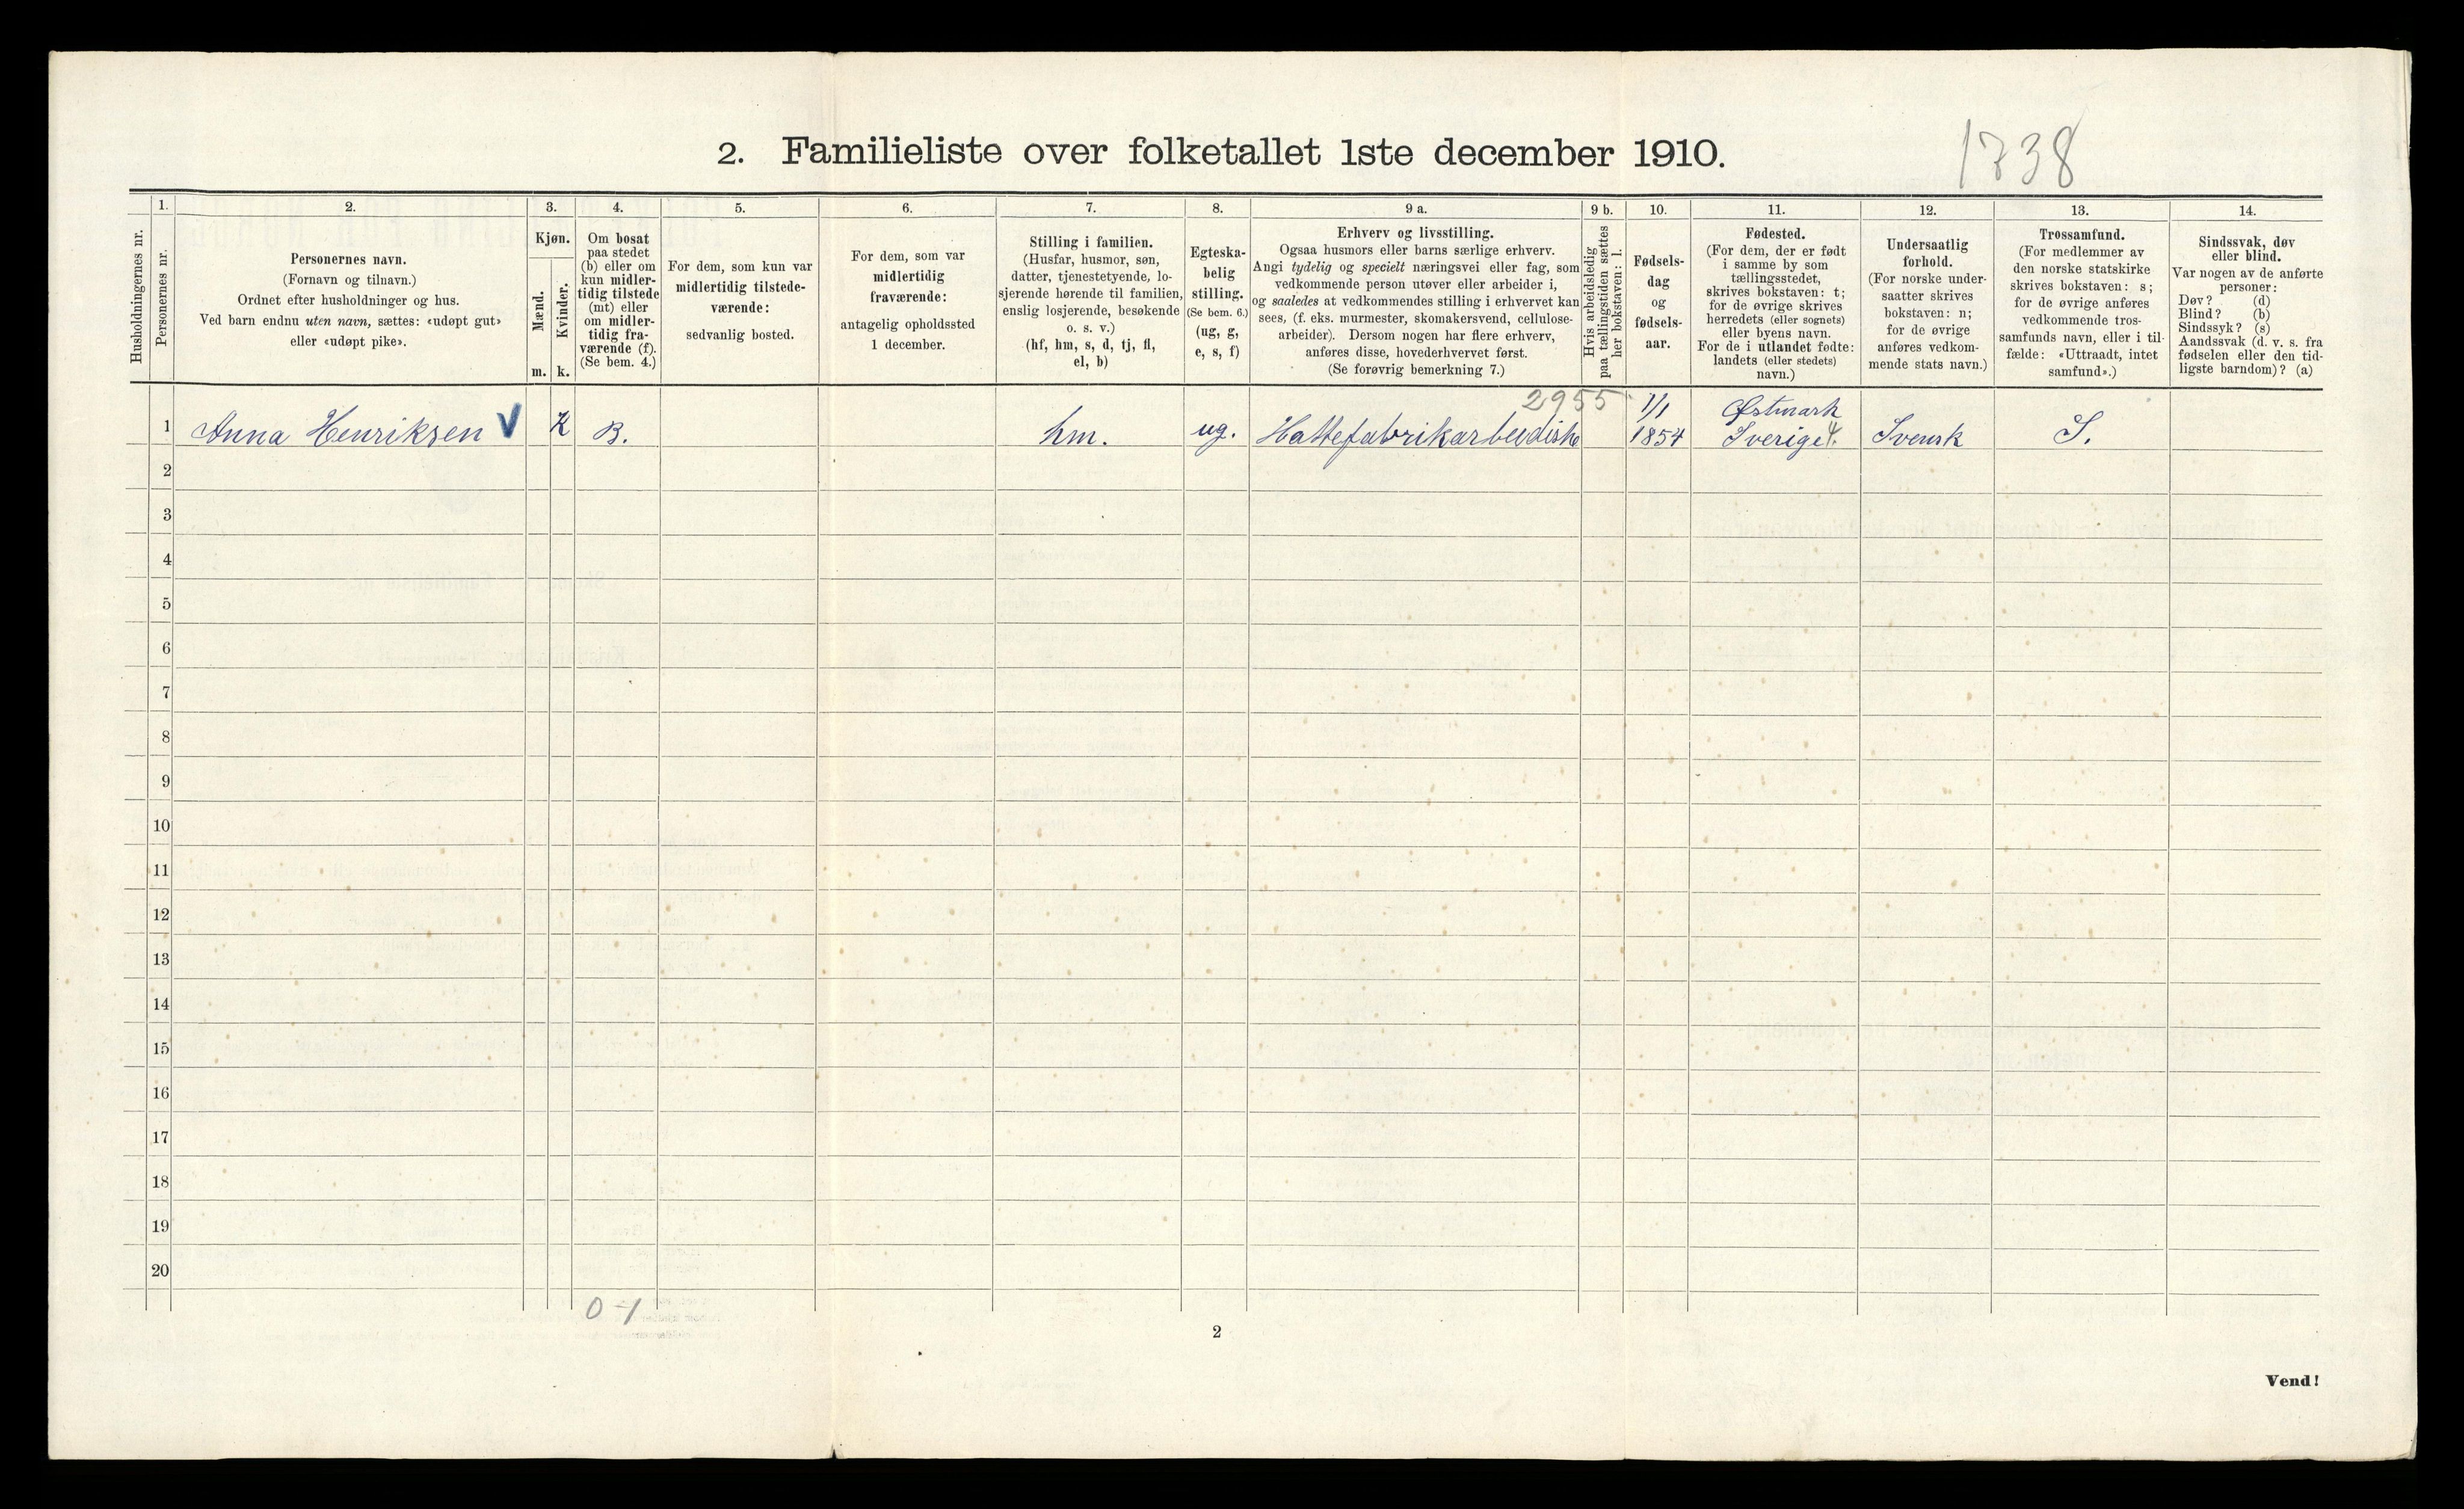 2. Familieliste over folketallet 1ste december 1910.
1738
Husholdningernes nr.
1.
Personernes nr.
2.
Personernes navn.
(Fornavn og tilnavn.)
Ordnet efter husholdninger og hus.
Ved barn endnu uten navn, sættes: «udøpt gut»
eller «udøpt pike».
3.
Kjøn.
Mænd.
Kvinder.
m.
k.
4.
Om bosat
paa stedet
(b) eller om
kun midler-
tidig tilstede
(mt) eller
om midler-
tidig fra-
værende (f).
(Se bem. 4.)
5.
For dem, som kun var
midlertidig tilstede-
værende:
sedvanlig bosted.
6.
For dem, som var
midlertidig
fraværende:
antagelig opholdssted
1 december.
7.
Stilling i familien.
(Husfar, husmor, søn,
datter, tjenestetyende, lo-
sjerende hørende til familien,
enslig losjerende, besøkende
o. s. v.)
(hf, hm, s, d, tj, fl,
el, b)
8.
Egteska-
belig
stilling.
(Se bem. 6.)
(ug, g,
e, s, f)
9 a.
Erhverv og livsstilling.
Ogsaa husmors eller barns særlige erhverv.
Angi tydelig og specielt næringsvei eller fag, som
vedkommende person utøver eller arbeider i,
og saaledes at vedkommendes stilling i erhvervet kan
sees, (f. eks. murmester, skomakersvend, cellulose-
arbeider). Dersom nogen har flere erhverv,
anføres disse, hovederhvervet først.
(Se forøvrig bemerkning 7.)
9 b.
Hvis arbeidsledig
paa tællingstiden sættes
her bokstaven: l.
10.
Fødsels-
dag
og
fødsels-
aar.
11.
Fødested.
(For dem, der er født
i samme by som
tællingsstedet,
skrives bokstaven: t;
for de øvrige skrives
herredets (eller sognets)
eller byens navn.
For de i utlandet fødte:
landets (eller stedets)
navn.)
12.
Undersaatlig
forhold.
(For norske under-
saatter skrives
bokstaven: n;
for de øvrige
anføres vedkom-
mende stats navn.)
13.
Trossamfund.
(For medlemmer av
den norske statskirke
skrives bokstaven: s;
for de øvrige anføres
vedkommende tros-
samfunds navn, eller i til-
fælde: «Uttraadt, intet
samfund».)
14.
Sindssvak, døv
eller blind.
Var nogen av de anførte
personer:
Døv? (d)
Blind? (b)
Sindssyk? (s)
Aandssvak (d. v. s. fra
fødselen eller den tid-
ligste barndom)? (a)
2955 1/1 Østmark
1 Anna Henriksen V K B. hm. ug. Hattefabrikarbeidiske 1854 Sverige. Svensk S.
2
3
4
5
6
7
8
9
10
11
12
13
14
15
16
17
18
19
20
0-1
2
Vend!